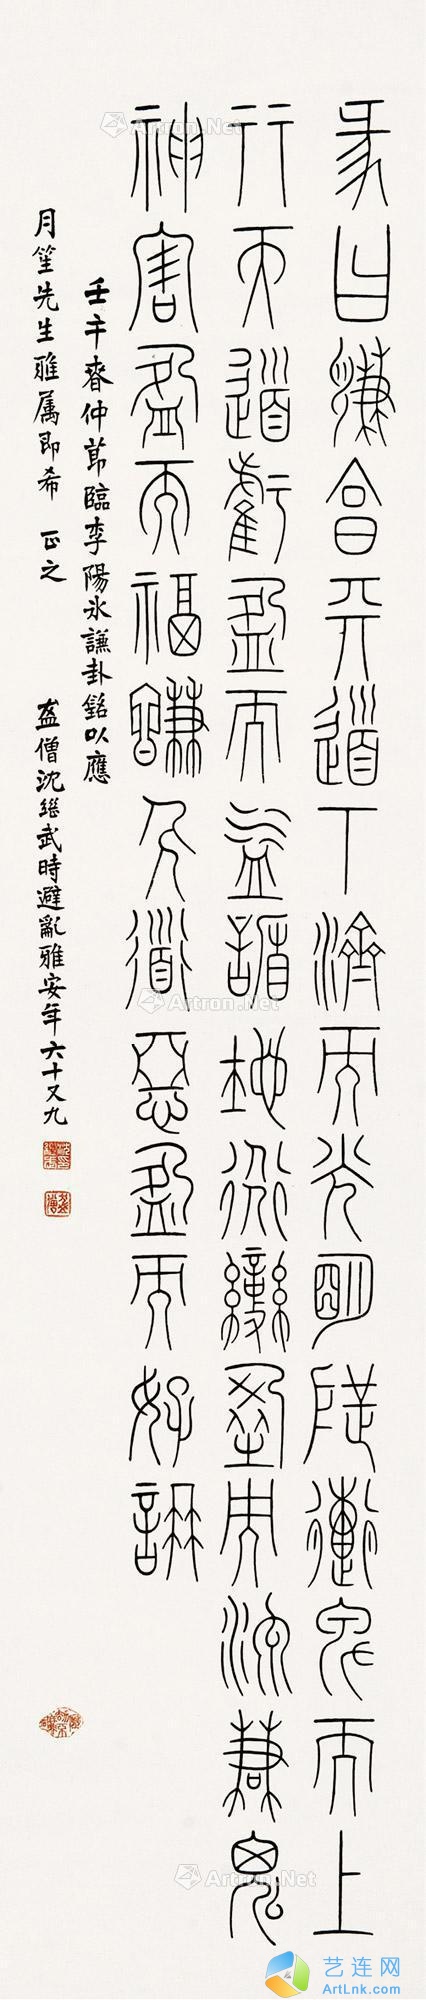 彖曰謙亨天道下濟而光明地道卑而上
行天道虧盈而益謙地道變盈而流謙鬼
神害盈而福謙人道惡盈而好謙
壬午春仲節臨李陽冰謙卦銘以應
月笙先生雅屬即希 正之 盇僧沈繼武時避亂雅安年六十又九
Artron.Net
Artron.Net
Artron.Net
Artron.Net
艺连网
ArtLnk.com